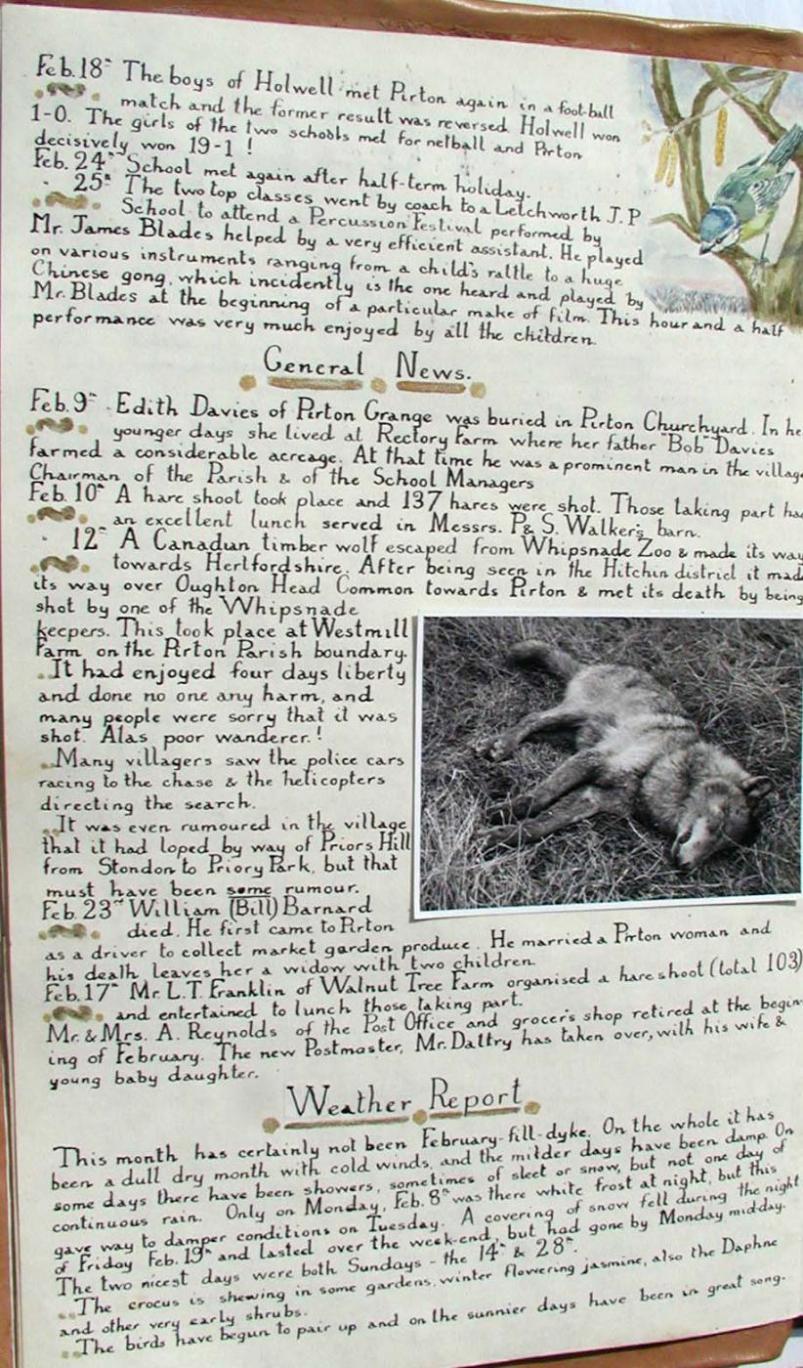 Feb. 18th The boys of Holwell met Pirton again in a foot-ball
match and the former result was reversed Holwell won
1-0. The girls of the two schools met for netball and Pirton
decisively won 19-1 !
Feb. 24th School met again after half-term holiday.
" 25th The two top classes went by coach to a Letchworth J.P
School to attend a Percussion Festival performed by
Mr. James Blades helped by a very efficient assistant. He played
on various instruments ranging from a child's rattle to a huge
Chinese gong, which incidently is the one heard and played by
Mr. Blades at the beginning of a particular make of film. This hour and a half
performance was very much enjoyed by all the children.
General News.
Feb. 9th Edith Davies of Pirton Grange was buried in Pirton Churchyard. In he
younger days she lived at Rectory Farm where her father "Bob" Davies
farmed a considerable acreage. At that time he was a prominent man in the village
Chairman of the Parish & of the School Managers
Feb. 10th A hare shoot took place and 137 hares were shot. Those taking part had
an excellent lunch served in Messrs. P. & S. Walker's barn.
" 12th A Canadian timber wolf escaped from Whipsnade Zoo & made its way
towards Hertfordshire. After being seen in the Hitchin district it made
its way over Oughton Head Common towards Pirton & met its death by being
shot by one of the Whipsnade
keepers. This took place at Westmill
Farm on the Pirton Parish boundary.
It had enjoyed four days liberty
and done no one any harm, and
many people were sorry that it was
shot. Alas poor wanderer. !
Many villagers saw the police cars
racing to the chase & the helicopters
directing the search.
It was even rumoured in the village
that it had loped by way of Priors Hill
from Stondon to Priory Park, but that
must have been some rumour.
Feb. 23rd William (Bill) Barnard
died. He first came to Pirton
as a driver to collect market garden produce. He married a Pirton woman and
his death leaves her a widow with two children.
Feb. 17th Mr. L.T. Franklin of Walnut Tree Farm organised a hare shoot (total 103)
and entertained to lunch those taking part.
Mr. & Mrs. A. Reynolds of the Post Office and grocer's shop retired at the begin-
ing of February. The new Postmaster, Mr. Daltry has taken over, with his wife &
young baby daughter.
Weather Report
This month has certainly not been February-fill-dyke. On the whole it has
been a dull dry month with cold winds, and the milder days have been damp. On
some days there have been showers, sometimes of sleet or snow, but not one day of
continuous rain. Only on Monday, Feb. 8th was there white frost at night, but this
gave way to damper conditions on Tuesday. A covering of snow fell during the night
of Friday Feb. 19th and lasted over the week-end, but had gone by Monday mid-day.
The two nicest days were both Sundays - the 14th & 28th.
The crocus is shewing in some gardens, winter flowering jasmine, also the Daphne
and other very early shrubs.
The birds have begun to pair up and on the sunnier days have been in great song.